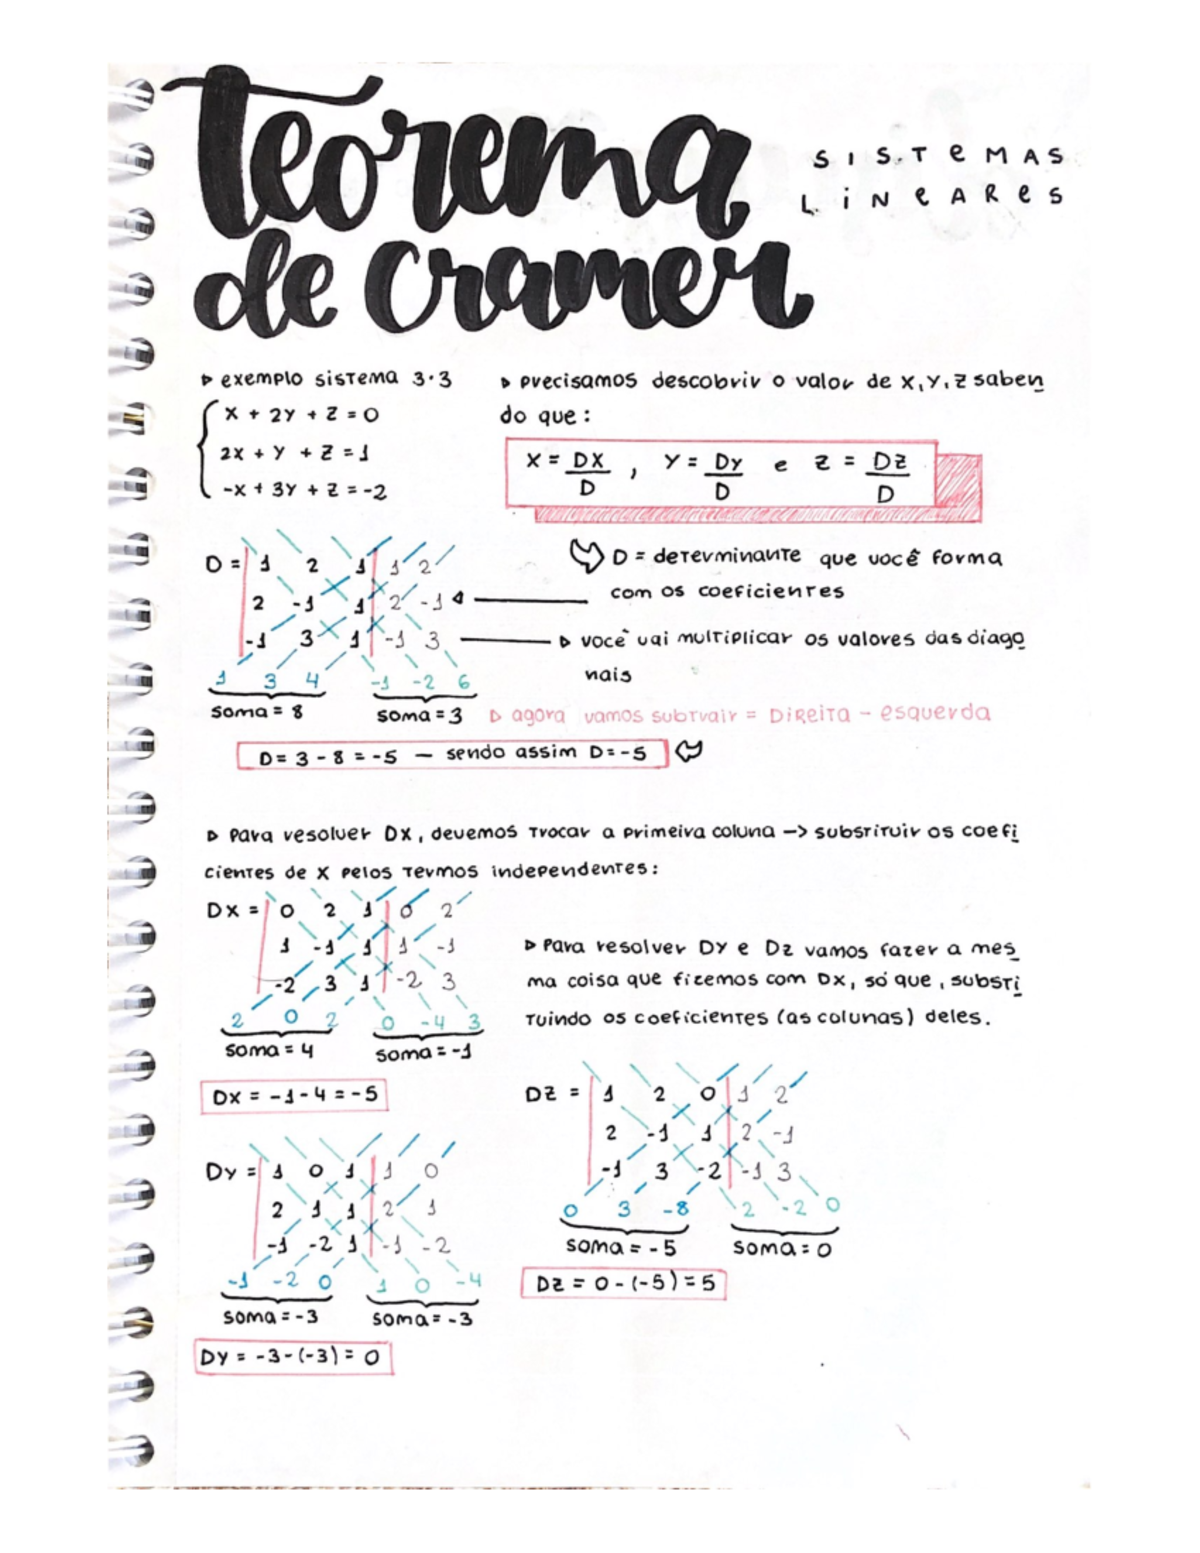 Teorema
de Cramer
SISTEMAS
LINEARES
▷ exemplo sistema 3·3
x + 2y + z = 0
2x + y + z = 1
-x + 3y + z = -2
▷ precisamos descobrir o valor de x, y, z saben
do que:
x = Dx/D , y = Dy/D e z = Dz/D
D = determinante que você forma
com os coeficientes
D = 1 2 1 1 2
2 -1 1 2 -1
-1 3 1 -1 3
▷ você vai multiplicar os valores das diago
nais
1 3 4 -1 -2 6
soma = 8 soma = 3
▷ agora vamos subtrair = Direita - esquerda
D = 3 - 8 = -5 — sendo assim D = -5
▷ Para resolver Dx, devemos trocar a primeira coluna -> substituir os coefi
cientes de x pelos termos independentes:
Dx = 0 2 1 0 2
1 -1 1 1 -1
-2 3 1 -2 3
2 0 2 0 -4 3
soma = 4 soma = -1
Dx = -1 - 4 = -5
▷ Para resolver Dy e Dz vamos fazer a mes
ma coisa que fizemos com Dx, só que, substi
tuindo os coeficientes (as colunas) deles.
Dy = 1 0 1 1 0
2 1 1 2 1
-1 -2 1 -1 -2
-1 -2 0 1 0 -4
soma = -3 soma = -3
Dy = -3 - (-3) = 0
Dz = 1 2 0 1 2
2 -1 1 2 -1
-1 3 -2 -1 3
0 3 -8 2 -2 0
soma = -5 soma = 0
Dz = 0 - (-5) = 5